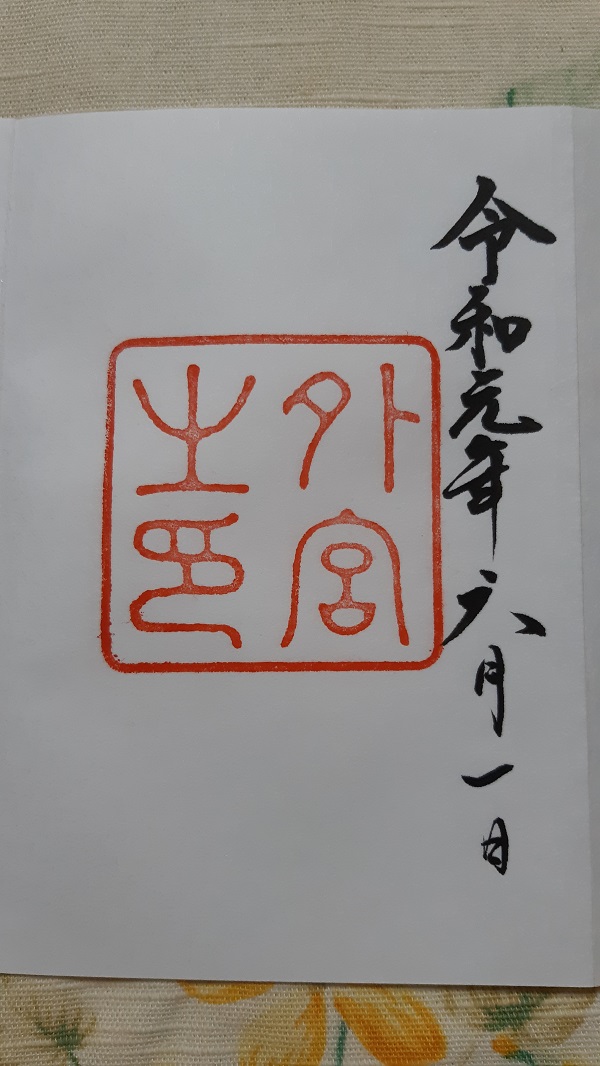 令和元年六月一日
外宮
之印